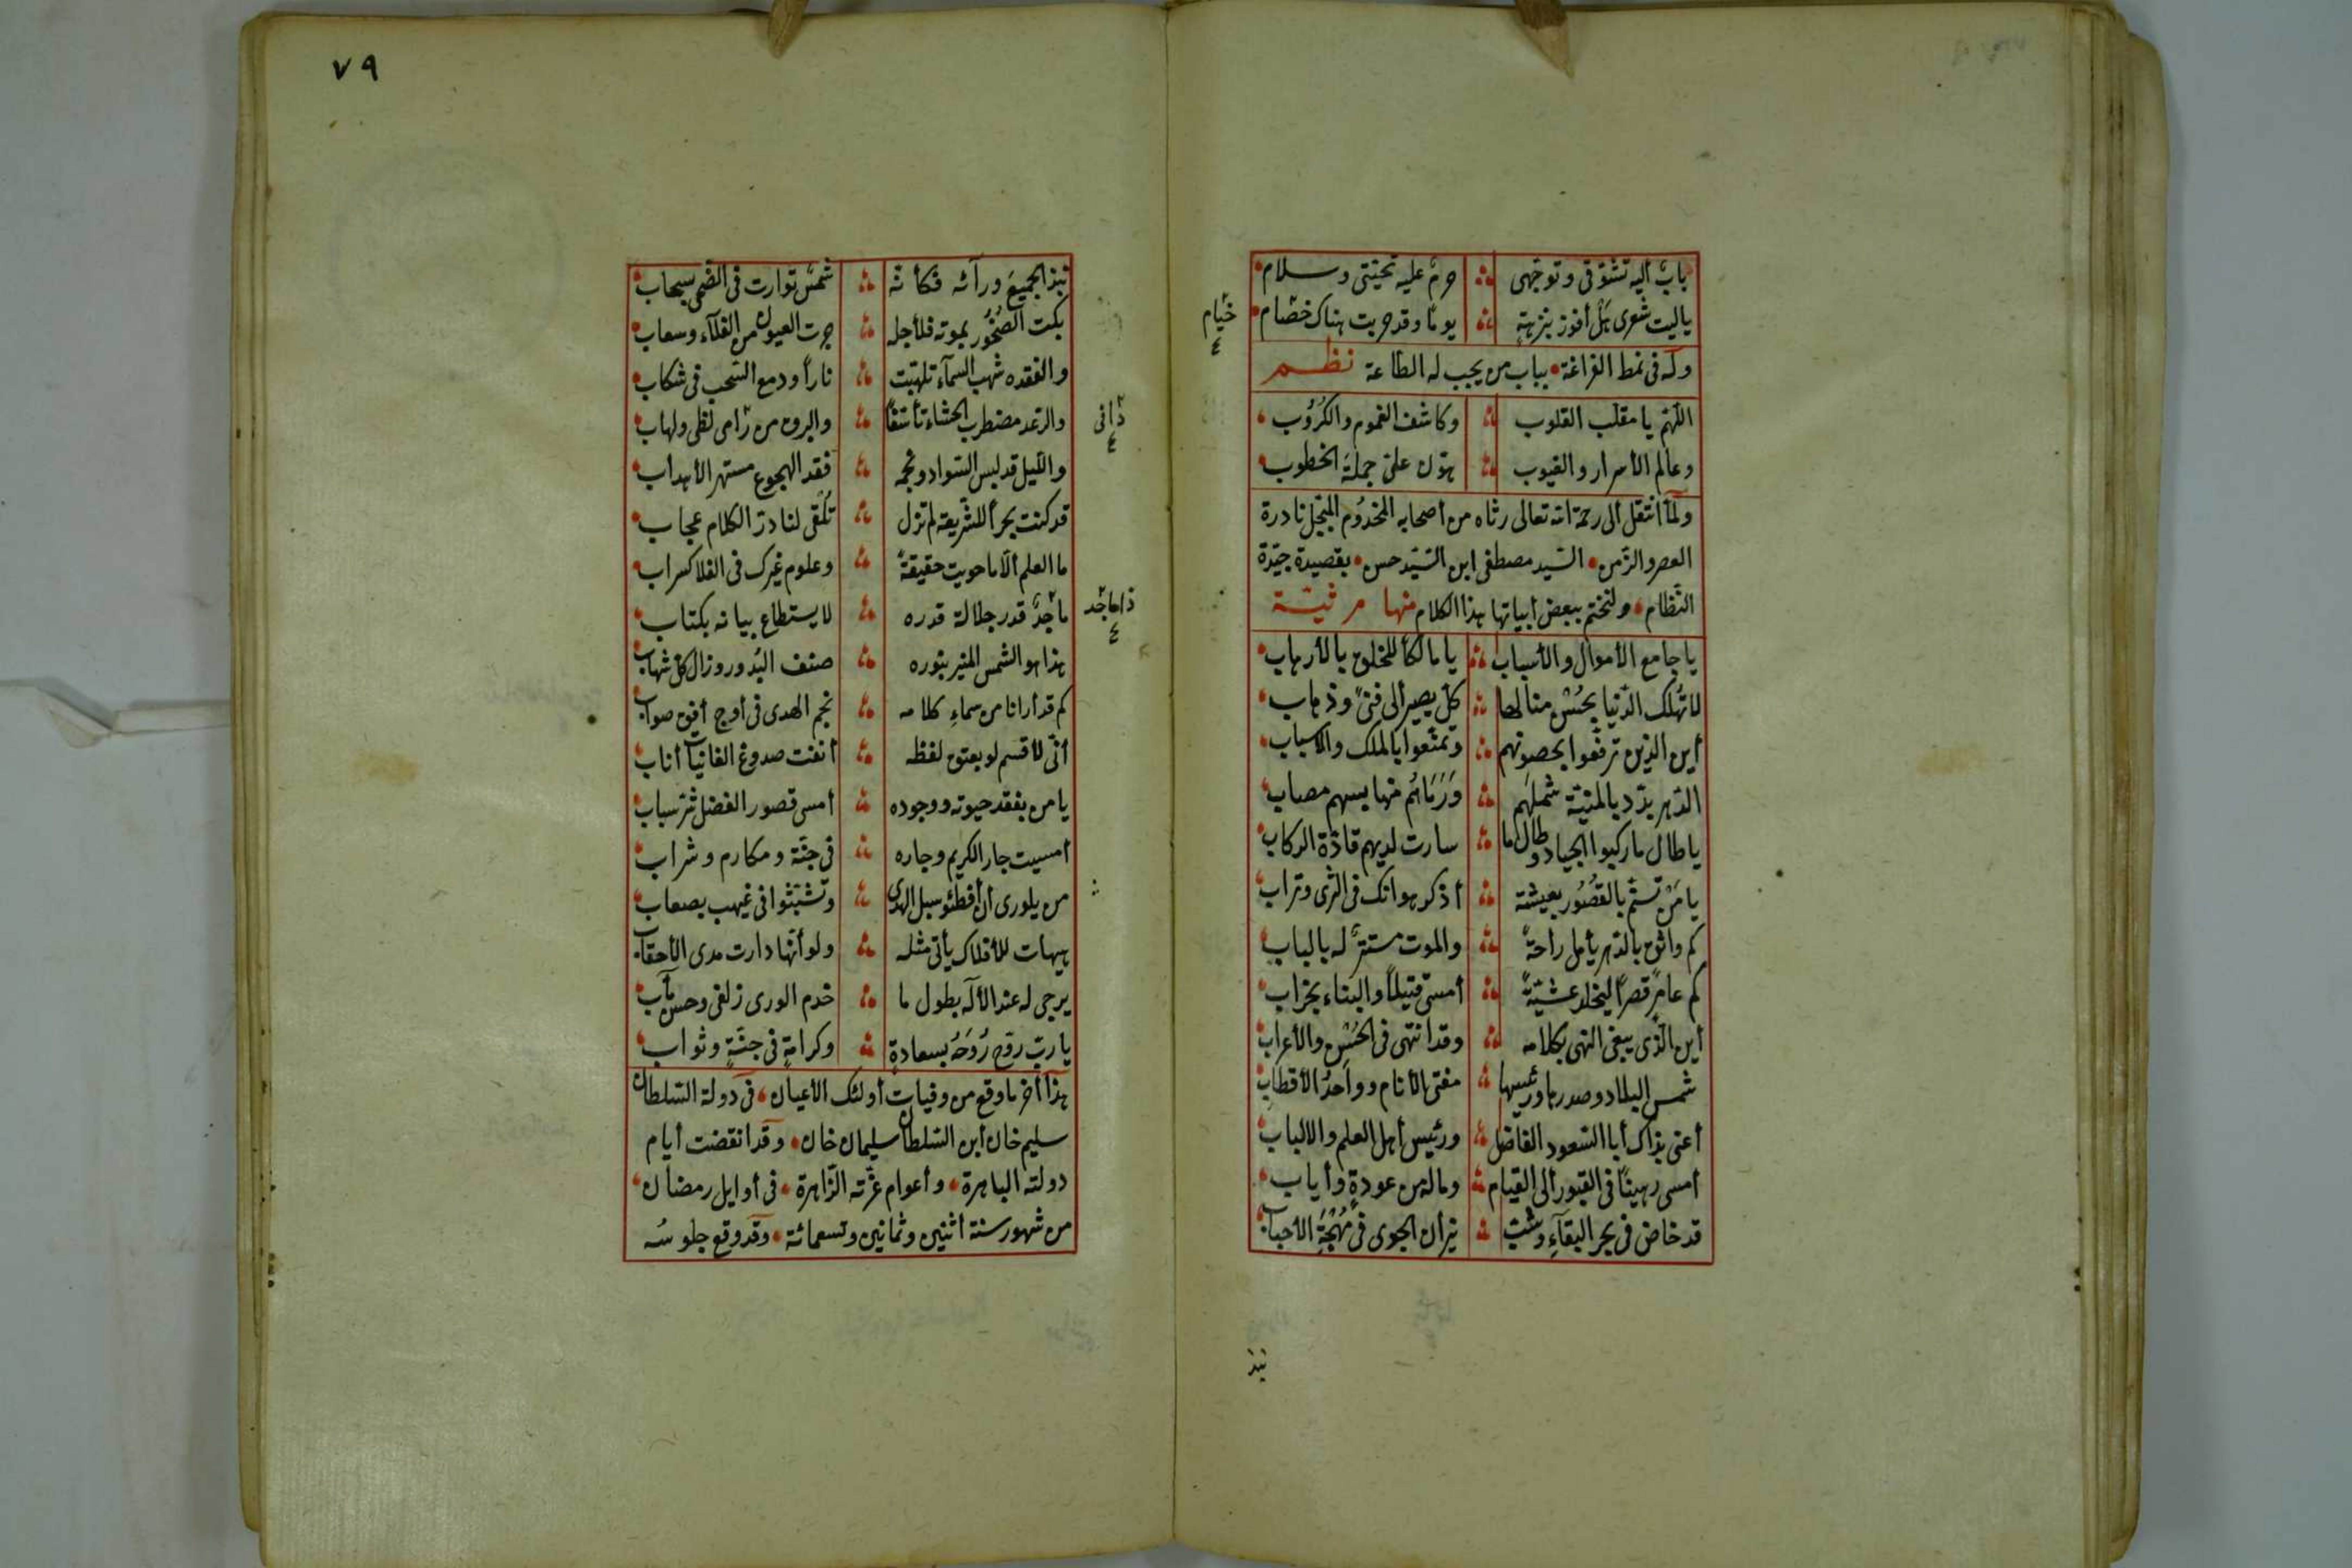 باب اليه تشوقى وتوجهى ؞ حرم عليه تحيتى وسلام
ياليت شعرى هل أفوز بنزهة ؞ يوما وقد حربت هناك خصام
خيام
وله فى نمط الفراغة بباب من يجب له الطاعة نظم
اللهم يا مقلب القلوب ؞ وكاشف الغموم والكروب
وعالم الأسرار والغيوب ؞ هون على جملة الخطوب
ولما أنتقل ألى رحمة الله تعالى رثاه من أصحابه المخدوم المبجل نادرة
العصر والزمن السيد مصطفى ابن السيد حسن بقصيدة جيدة
النظام ولنختم ببعض أبياتها هذا الكلام منها مرثية
يا جامع الأموال والأسباب ؞ يا مالكا للخلق بالأرهاب
لا تهلك الدنيا بحسن منالها ؞ كل يصير ألى فنى وذهاب
أين الذين ترفعوا بحصونهم ؞ وتمتعوا بالملك والاسباب
الدهر بدد بالمنية شملهم ؞ ورماهم منها بسهم مصاب
يا طال ما ركبوا الجياد وطال ما ؞ سارت لديهم قادة الركاب
يا من تسنم بالقصور بعيشة ؞ أذكر هوانك فى الثرى وتراب
كم واثق بالدهر يأمل راحة ؞ والموت مستتر له بالباب
كم عامر قصرا ليخلد عشية ؞ أمسى قتيلا والبناء بخراب
أين الذى يبغى النهى بكلامه ؞ وقد انتهى فى الحسن والأعراب
شمس البلاد وصدرها ورئيسها ؞ مفتى الأنام وواحد الأقطاب
أعنى بذاك أبا السعود الفاضل ؞ ورئيس أهل العلم والالباب
أمسى رهينا فى القبور ألى القيام ؞ وماله من عودة وأياب
قد خاض فى بحر البقاء وشب ؞ نيران الجوى فى مهجة الأحباب
نبذ
٧٩
نبذ الجميع ورآئه فكأنه ؞ شمس توارت فى الضحى بسحاب
بكت الصخور بموته فلأجله ؞ جرت العيون من الفلاء وسعاب
والفقده شهب السماء تلهبت ؞ نارا ودمع السحب فى شكاب
والرعد مضطرب الحشاء تأسفا ؞ والبرق من رامى لظى ولهاب
ذانى
والليل قد لبس السواد ونجمه ؞ فقد الهجوع مستهر الأهداب
قد كنت بحرا للشريعة لم تزل ؞ تلقى لنا در الكلام عجاب
ما العلم الا ما حويت حقيقة ؞ وعلوم غيرك فى الفلا كسراب
ما جد قدر جلالة قدره ؞ لا يستطاع بيانه بكتاب
ذا ماجد
هذا هو الشمس المنير بنوره ؞ صنف البدور وزال كل شهاب
كم قد أرانا من سماء كلامه ؞ نجم الهدى فى أوج أفق صواب
أنى لأقسم لو بعتق لفظه ؞ أنفت صدوغ الغانيات أناب
يا من بفقد حيوته ووجوده ؞ أمسى قصور الفضل شر سباب
أمسيت جار الكريم وجاره ؞ فى جنة ومكارم وشراب
من يلورى أن أفطئو سبل الهدى ؞ وتشبثوا فى غيهب بصعاب
هيهات للأفلاك يأتى مثله ؞ ولو أنها دارت مدى الأحقاب
يرجى له عند الأله بطول ما ؞ خدم الورى زلفى وحسن مآب
يا رب روح روحه بسعادة ؞ وكرامة فى جنة وثواب
هذا أخر ما وقع من وفيات أولئك الأعيان فى دولة السلطان
سليم خان أبن السلطان سليمان خان وقد انقضت أيام
دولته الباهرة وأعوام غرته الزاهرة فى أوايل رمضان
من شهور سنة أثنين وثمانين وتسعمائة وقد وقع جلوسه